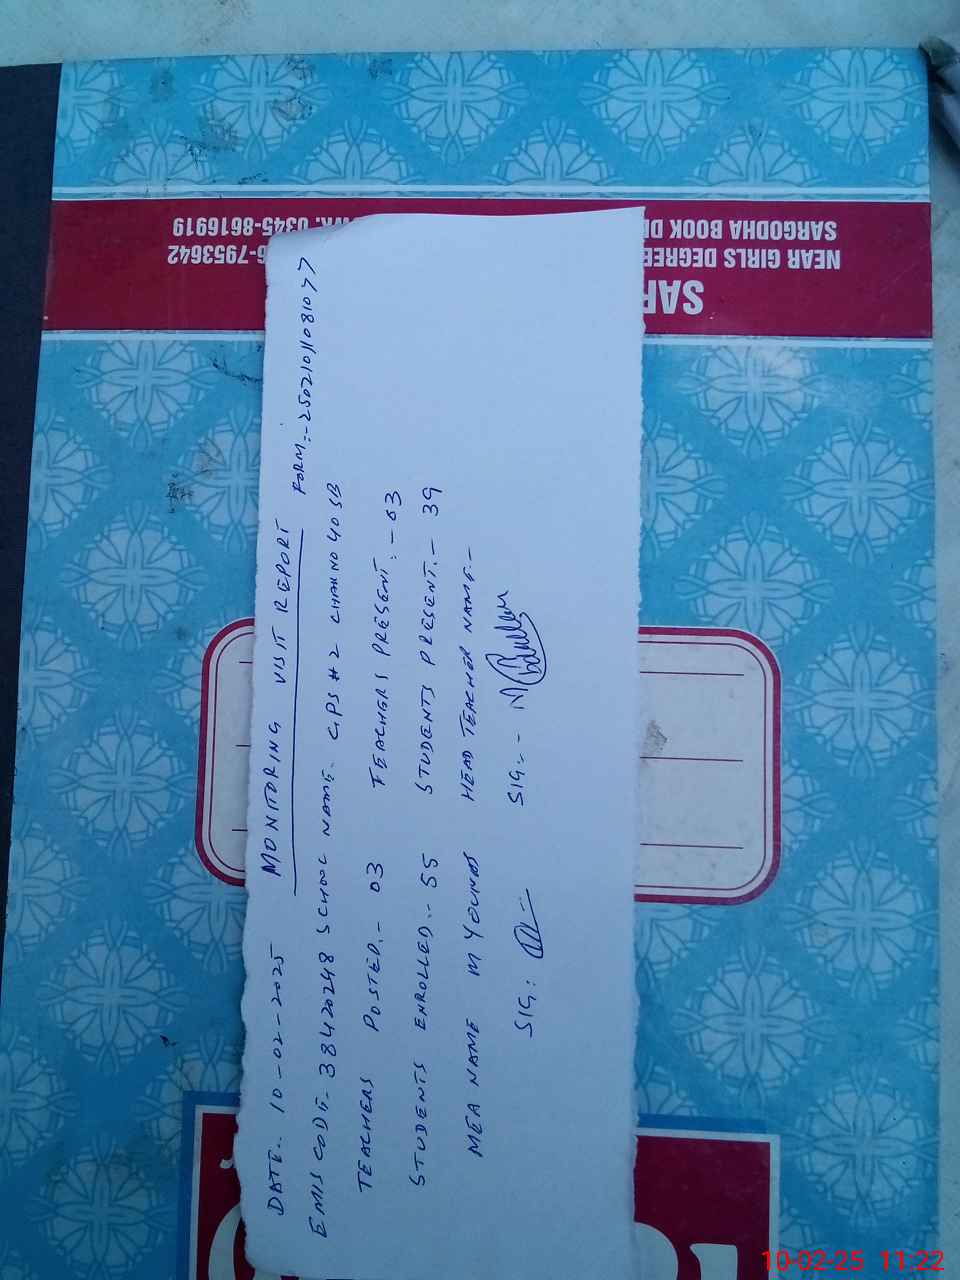 DATE.. 10-02-2025 MONITORING VISIT REPORT FORM:-25021011081077
EMIS CODE- 38420248 SCHOOL NAME- GPS # 2 CHAK NO 40 SB
TEACHERS POSTED.- 03 TEACHERS PRESENT.- 03
STUDENTS ENROLLED.- 55 STUDENTS PRESENT.- 39
MEA NAME M YOUNAS HEAD TEACHER NAME.-
SIG: SIG.-
SAR
NEAR GIRLS DEGREE 6-7953642
SARGODHA BOOK 0345-8616919
10-02-25 11:22